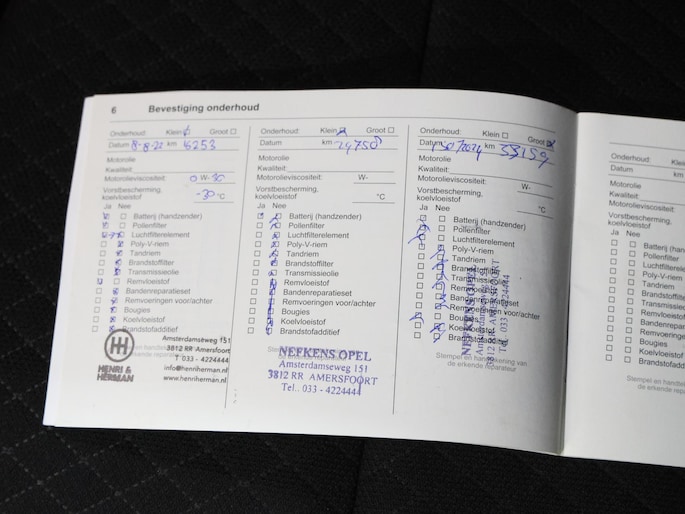 6 Bevestiging onderhoud
Onderhoud: Klein Groot
Datum 8-8-22 km
Motorolie
Kwaliteit:
Motorolieviscositeit: 0 W-30
Vorstbescherming,
koelvloeistof -30 °C
Ja Nee
Batterij (handzender)
Pollenfilter
Luchtfilterelement
Poly-V-riem
Tandriem
Brandstoffilter
Transmissieolie
Remvloeistof
Bandenreparatieset
Remvoeringen voor/achter
Bougies
Koelvloeistof
Brandstofadditief
HENRI &
HERMAN
Amsterdamseweg 151
3812 RR Amersfoort
T 033 - 4224444
info@henriherman.nl
www.henriherman.nl
Onderhoud: Klein Groot
Datum km
Motorolie
Kwaliteit:
Motorolieviscositeit: W-
Vorstbescherming,
koelvloeistof °C
Ja Nee
Batterij (handzender)
Pollenfilter
Luchtfilterelement
Poly-V-riem
Tandriem
Brandstoffilter
Transmissieolie
Remvloeistof
Bandenreparatieset
Remvoeringen voor/achter
Bougies
Koelvloeistof
Brandstofadditief
NEFKENS OPEL
Amsterdamseweg 151
3812 RR AMERSFOORT
Tel.. 033 - 4224444
Onderhoud: Klein Groot
Datum km 33159
Motorolie
Kwaliteit:
Motorolieviscositeit: W-
Vorstbescherming,
koelvloeistof °C
Ja Nee
Batterij (handzender)
Pollenfilter
Luchtfilterelement
Poly-V-riem
Tandriem
Brandstoffilter
Transmissieolie
Remvloeistof
Bandenreparatieset
Remvoeringen voor/achter
Bougies
Koelvloeistof
Brandstofadditief
NEFKENS OPEL
Amsterdamseweg 151
3812 RR AMERSFOORT
Tel.. 033 - 4224444
Stempel en handtekening van
de erkende reparateur
Onderhoud: Klein
Datum km
Motorolie
Kwaliteit:
Motorolieviscositeit:
Vorstbescherming,
koelvloeistof
Ja Nee
Batterij
Pollenfilter
Luchtfilterelement
Poly-V-riem
Tandriem
Transmissieolie
Remvloeistof
Bougies
Koelvloeistof